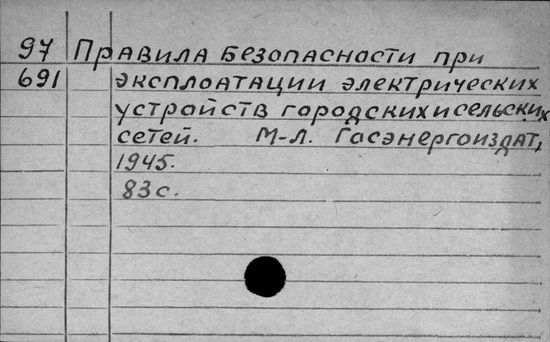 97 Правила безопасности при
691 эксплоатации электрических
устройств городских и сельских
сетей. М-Л. Госэнергоиздат,
1945.
83 с.